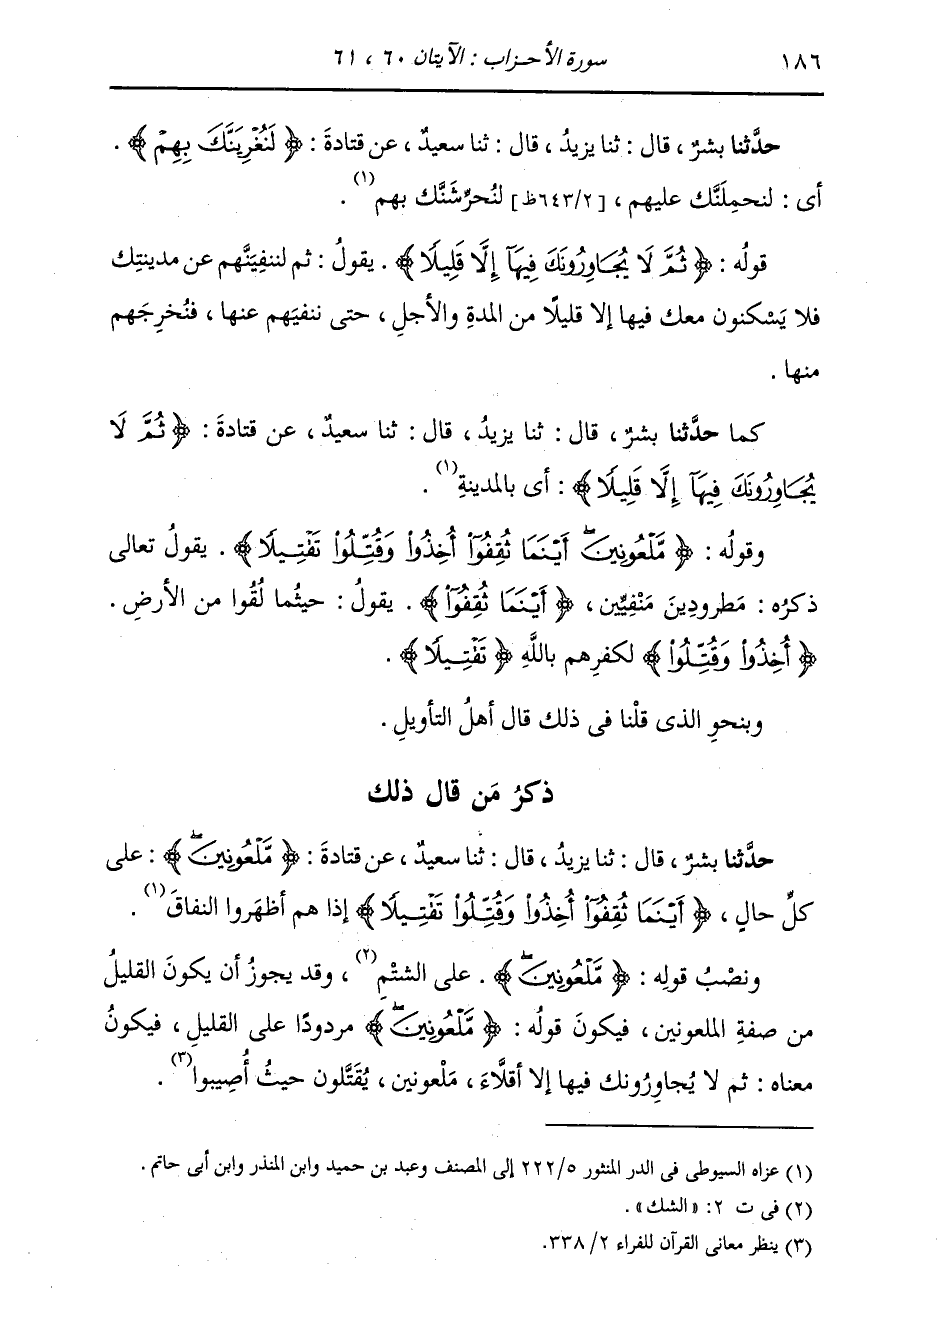 ١٨٦ سورة الأحزاب : الآيتان ٦٠ ، ٦١
حدَّثنا بشرٌ ، قال : ثنا يزيدُ ، قال : ثنا سعيدٌ ، عن قتادةَ : ﴿ لَنُغْرِيَنَّكَ بِهِمْ ﴾ .
أى : لنحمِلَنَّك عليهم ، [٦٤٣/٢ظ] لنُحرِّشَنَّك بهم(١) .
قولُه : ﴿ ثُمَّ لَا يُجَاوِرُونَكَ فِيهَآ إِلَّا قَلِيلًا ﴾ . يقولُ : ثم لننفِيَنَّهم عن مدينتِك
فلا يَسْكنون معك فيها إلا قليلًا من المدةِ والأجلِ ، حتى ننفيَهم عنها ، فنُخرِجَهم
منها .
كما حدَّثنا بشرٌ ، قال : ثنا يزيدُ ، قال : ثنا سعيدٌ ، عن قتادةَ : ﴿ ثُمَّ لَا
يُجَاوِرُونَكَ فِيهَآ إِلَّا قَلِيلًا ﴾ : أى بالمدينةِ(١) .
وقولُه : ﴿ مَّلْعُونِينَۖ أَيْنَمَا ثُقِفُوٓاْ أُخِذُواْ وَقُتِّلُواْ تَقْتِيلًا ﴾ . يقولُ تعالى
ذكرُه : مَطرودِينَ مَنْفِيِّين ، ﴿ أَيْنَمَا ثُقِفُوٓاْ ﴾ . يقولُ : حيثُما لُقُوا من الأرضِ .
﴿ أُخِذُواْ وَقُتِّلُواْ ﴾ لكفرِهم باللَّهِ ﴿ تَقْتِيلًا ﴾ .
وبنحوِ الذى قلْنا فى ذلك قال أهلُ التأويلِ .
ذكرُ مَن قال ذلك
حدَّثنا بشرٌ ، قال : ثنا يزيدُ ، قال : ثنا سعيدٌ ، عن قتادةَ : ﴿ مَّلْعُونِينَۖ ﴾ : على
كلِّ حالٍ ، ﴿ أَيْنَمَا ثُقِفُوٓاْ أُخِذُواْ وَقُتِّلُواْ تَقْتِيلًا ﴾ إذا هم أظهَروا النفاقَ(١) .
ونصْبُ قولِه : ﴿ مَّلْعُونِينَۖ ﴾ . على الشتْمِ(٢) ، وقد يجوزُ أن يكونَ القليلُ
من صفةِ الملعونين ، فيكونَ قولُه : ﴿ مَّلْعُونِينَۖ ﴾ مردودًا على القليلِ ، فيكونُ
معناه : ثم لا يُجاوِرُونك فيها إلا أقلَّاءَ ، مَلْعونين ، يُقَتَّلون حيثُ أُصِيبوا(٣) .
(١) عزاه السيوطى فى الدر المنثور ٢٢٢/٥ إلى المصنف وعبد بن حميد وابن المنذر وابن أبى حاتم .
(٢) فى ت ٢: «الشك» .
(٣) ينظر معانى القرآن للفراء ٢/ ٣٣٨.